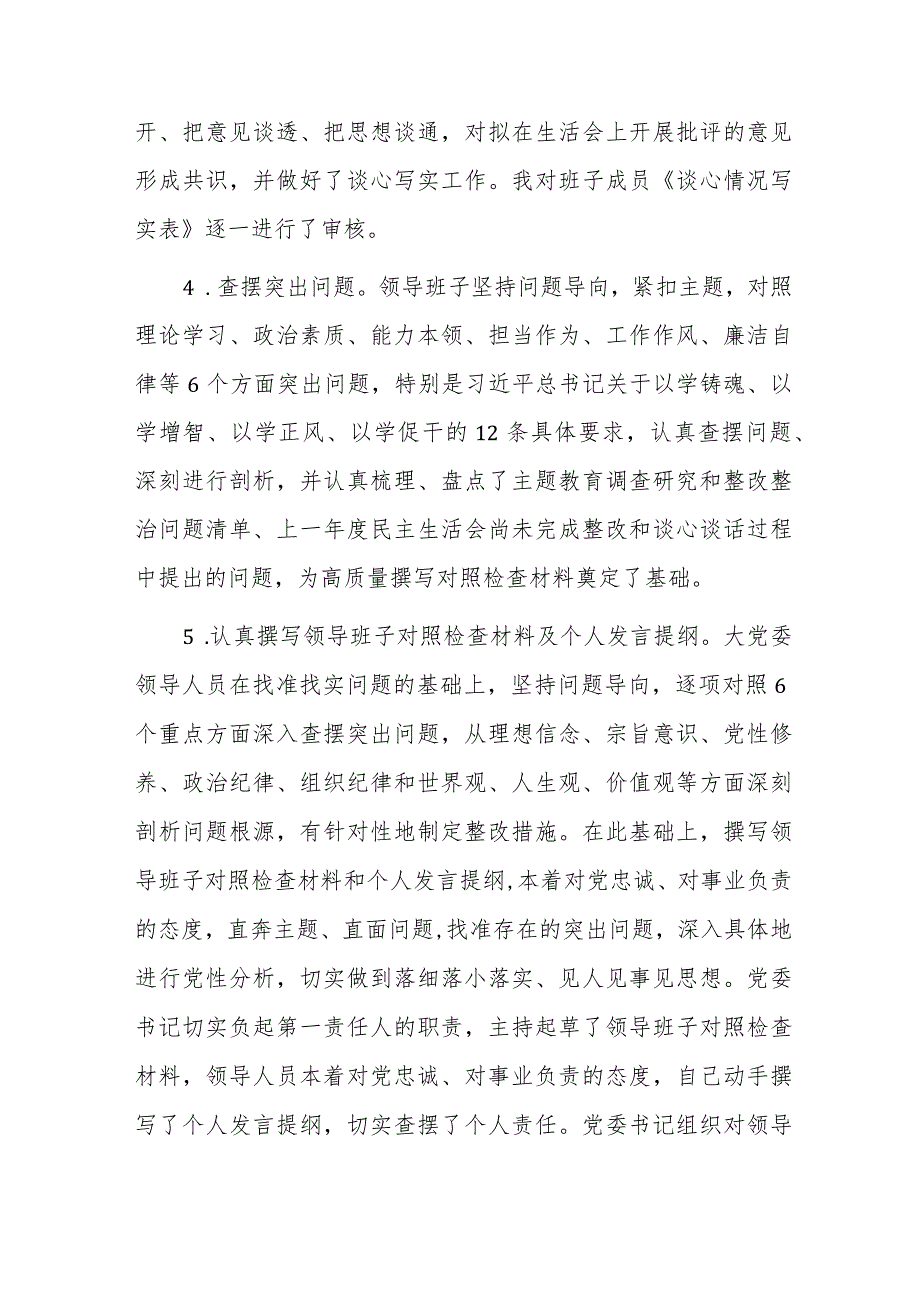 开、把意见谈透、把思想谈通，对拟在生活会上开展批评的意见
形成共识，并做好了谈心写实工作。我对班子成员《谈心情况写
实表》逐一进行了审核。
4 .查摆突出问题。领导班子坚持问题导向，紧扣主题，对照
理论学习、政治素质、能力本领、担当作为、工作作风、廉洁自
律等 6 个方面突出问题，特别是习近平总书记关于以学铸魂、以
学增智、以学正风、以学促干的 12 条具体要求，认真查摆问题、
深刻进行剖析，并认真梳理、盘点了主题教育调查研究和整改整
治问题清单、上一年度民主生活会尚未完成整改和谈心谈话过程
中提出的问题，为高质量撰写对照检查材料奠定了基础。
5 .认真撰写领导班子对照检查材料及个人发言提纲。大党委
领导人员在找准找实问题的基础上，坚持问题导向，逐项对照 6
个重点方面深入查摆突出问题，从理想信念、宗旨意识、党性修
养、政治纪律、组织纪律和世界观、人生观、价值观等方面深刻
剖析问题根源，有针对性地制定整改措施。在此基础上，撰写领
导班子对照检查材料和个人发言提纲,本着对党忠诚、对事业负责
的态度，直奔主题、直面问题,找准存在的突出问题，深入具体地
进行党性分析，切实做到落细落小落实、见人见事见思想。党委
书记切实负起第一责任人的职责，主持起草了领导班子对照检查
材料，领导人员本着对党忠诚、对事业负责的态度，自己动手撰
写了个人发言提纲，切实查摆了个人责任。党委书记组织对领导